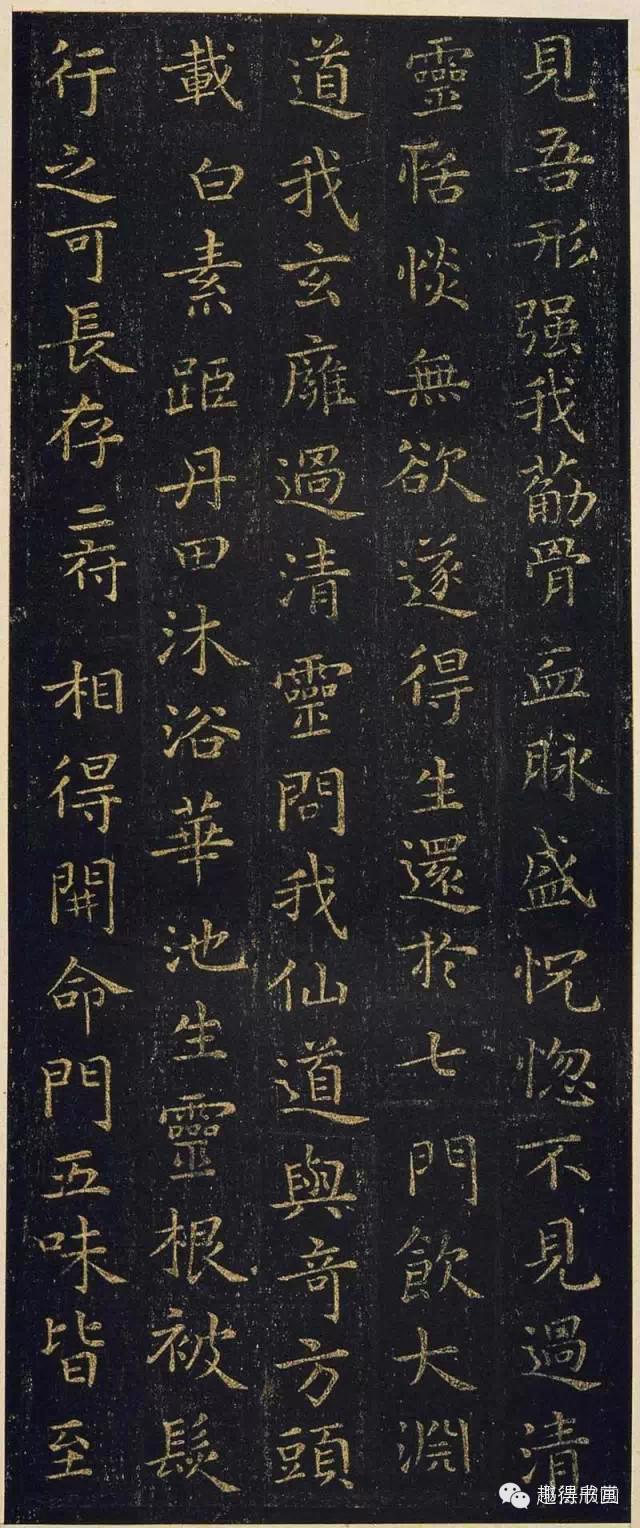 見吾形强我萮骨血脉盛怳惚不見過清
靈恬惔無欲遂得生還於七門飲大淵
道我玄廱過清靈問我仙道與奇方頭
載白素距丹田沐浴華池生靈根被髮
行之可長存二府相得開命門五味皆至
趣得欣賞